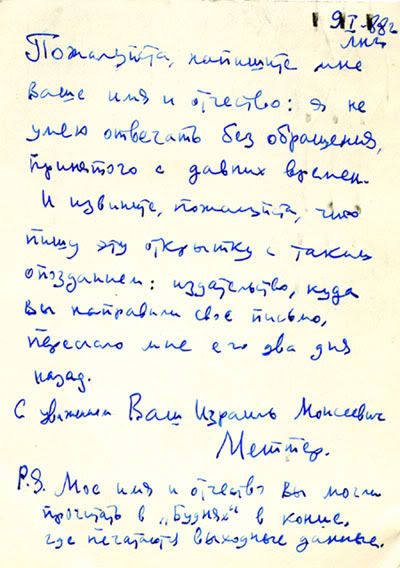 9 I 88г
Лнгр
Пожалуйста, напишите мне
Ваше имя и отчество: я не
умею отвечать без обращения,
принятого с давних времен.
И извините, пожалуйста, что
пишу эту открытку с таким
опозданием: издательство, куда
Вы направили свое письмо,
переслало мне его два дня
назад.
С уважением Ваш Израиль Моисеевич
Меттер.
P.S. Мое имя и отчество Вы могли
прочитать в „Буднях“ в конце,
где печатаются выходные данные.